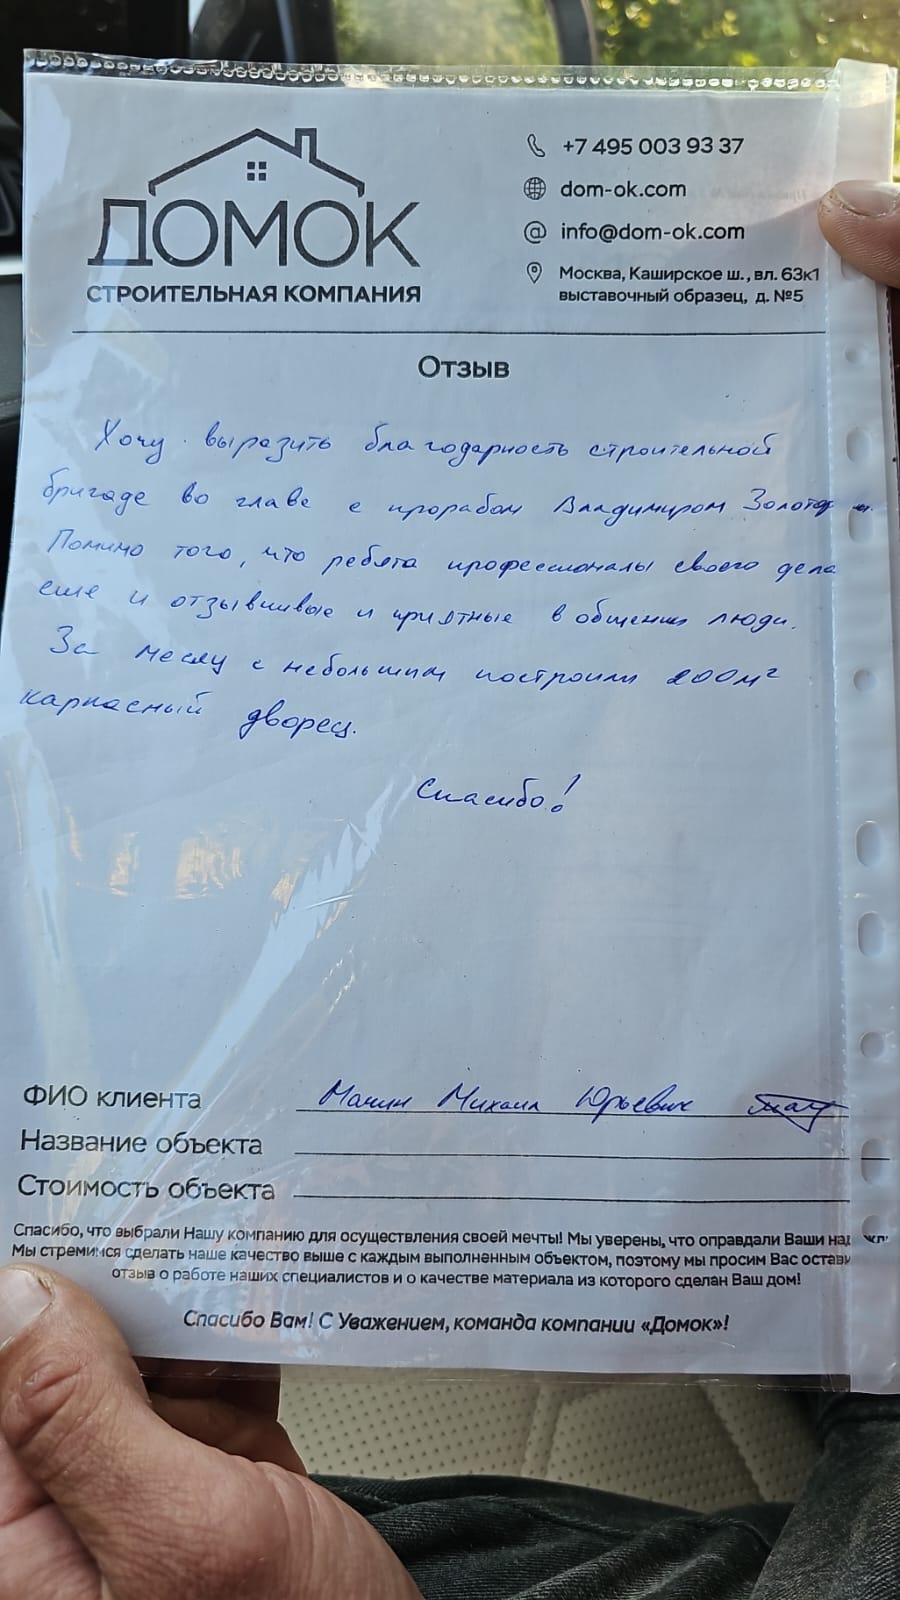 ДОМОК
СТРОИТЕЛЬНАЯ КОМПАНИЯ
+7 495 003 93 37
dom-ok.com
info@dom-ok.com
Москва, Каширское ш., вл. 63к1
выставочный образец, д. №5
Отзыв
Хочу выразить благодарность строительной
бригаде во главе с прорабом Владимиром
Помимо того, что ребята профессионалы своего дела
еще и отзывчивые и приятные в общении люди.
За месяц с небольшим построили 200м²
каркасный дворец.
Спасибо!
ФИО клиента Михаил Юрьевич
Название объекта
Стоимость объекта
Спасибо, что выбрали Нашу компанию для осуществления своей мечты! Мы уверены, что оправдали Ваши
Мы стремимся сделать наше качество выше с каждым выполненным объектом, поэтому мы просим Вас
отзыв о работе наших специалистов и о качестве материала из которого сделан Ваш дом!
Спасибо Вам! С Уважением, команда компании «Домок»!